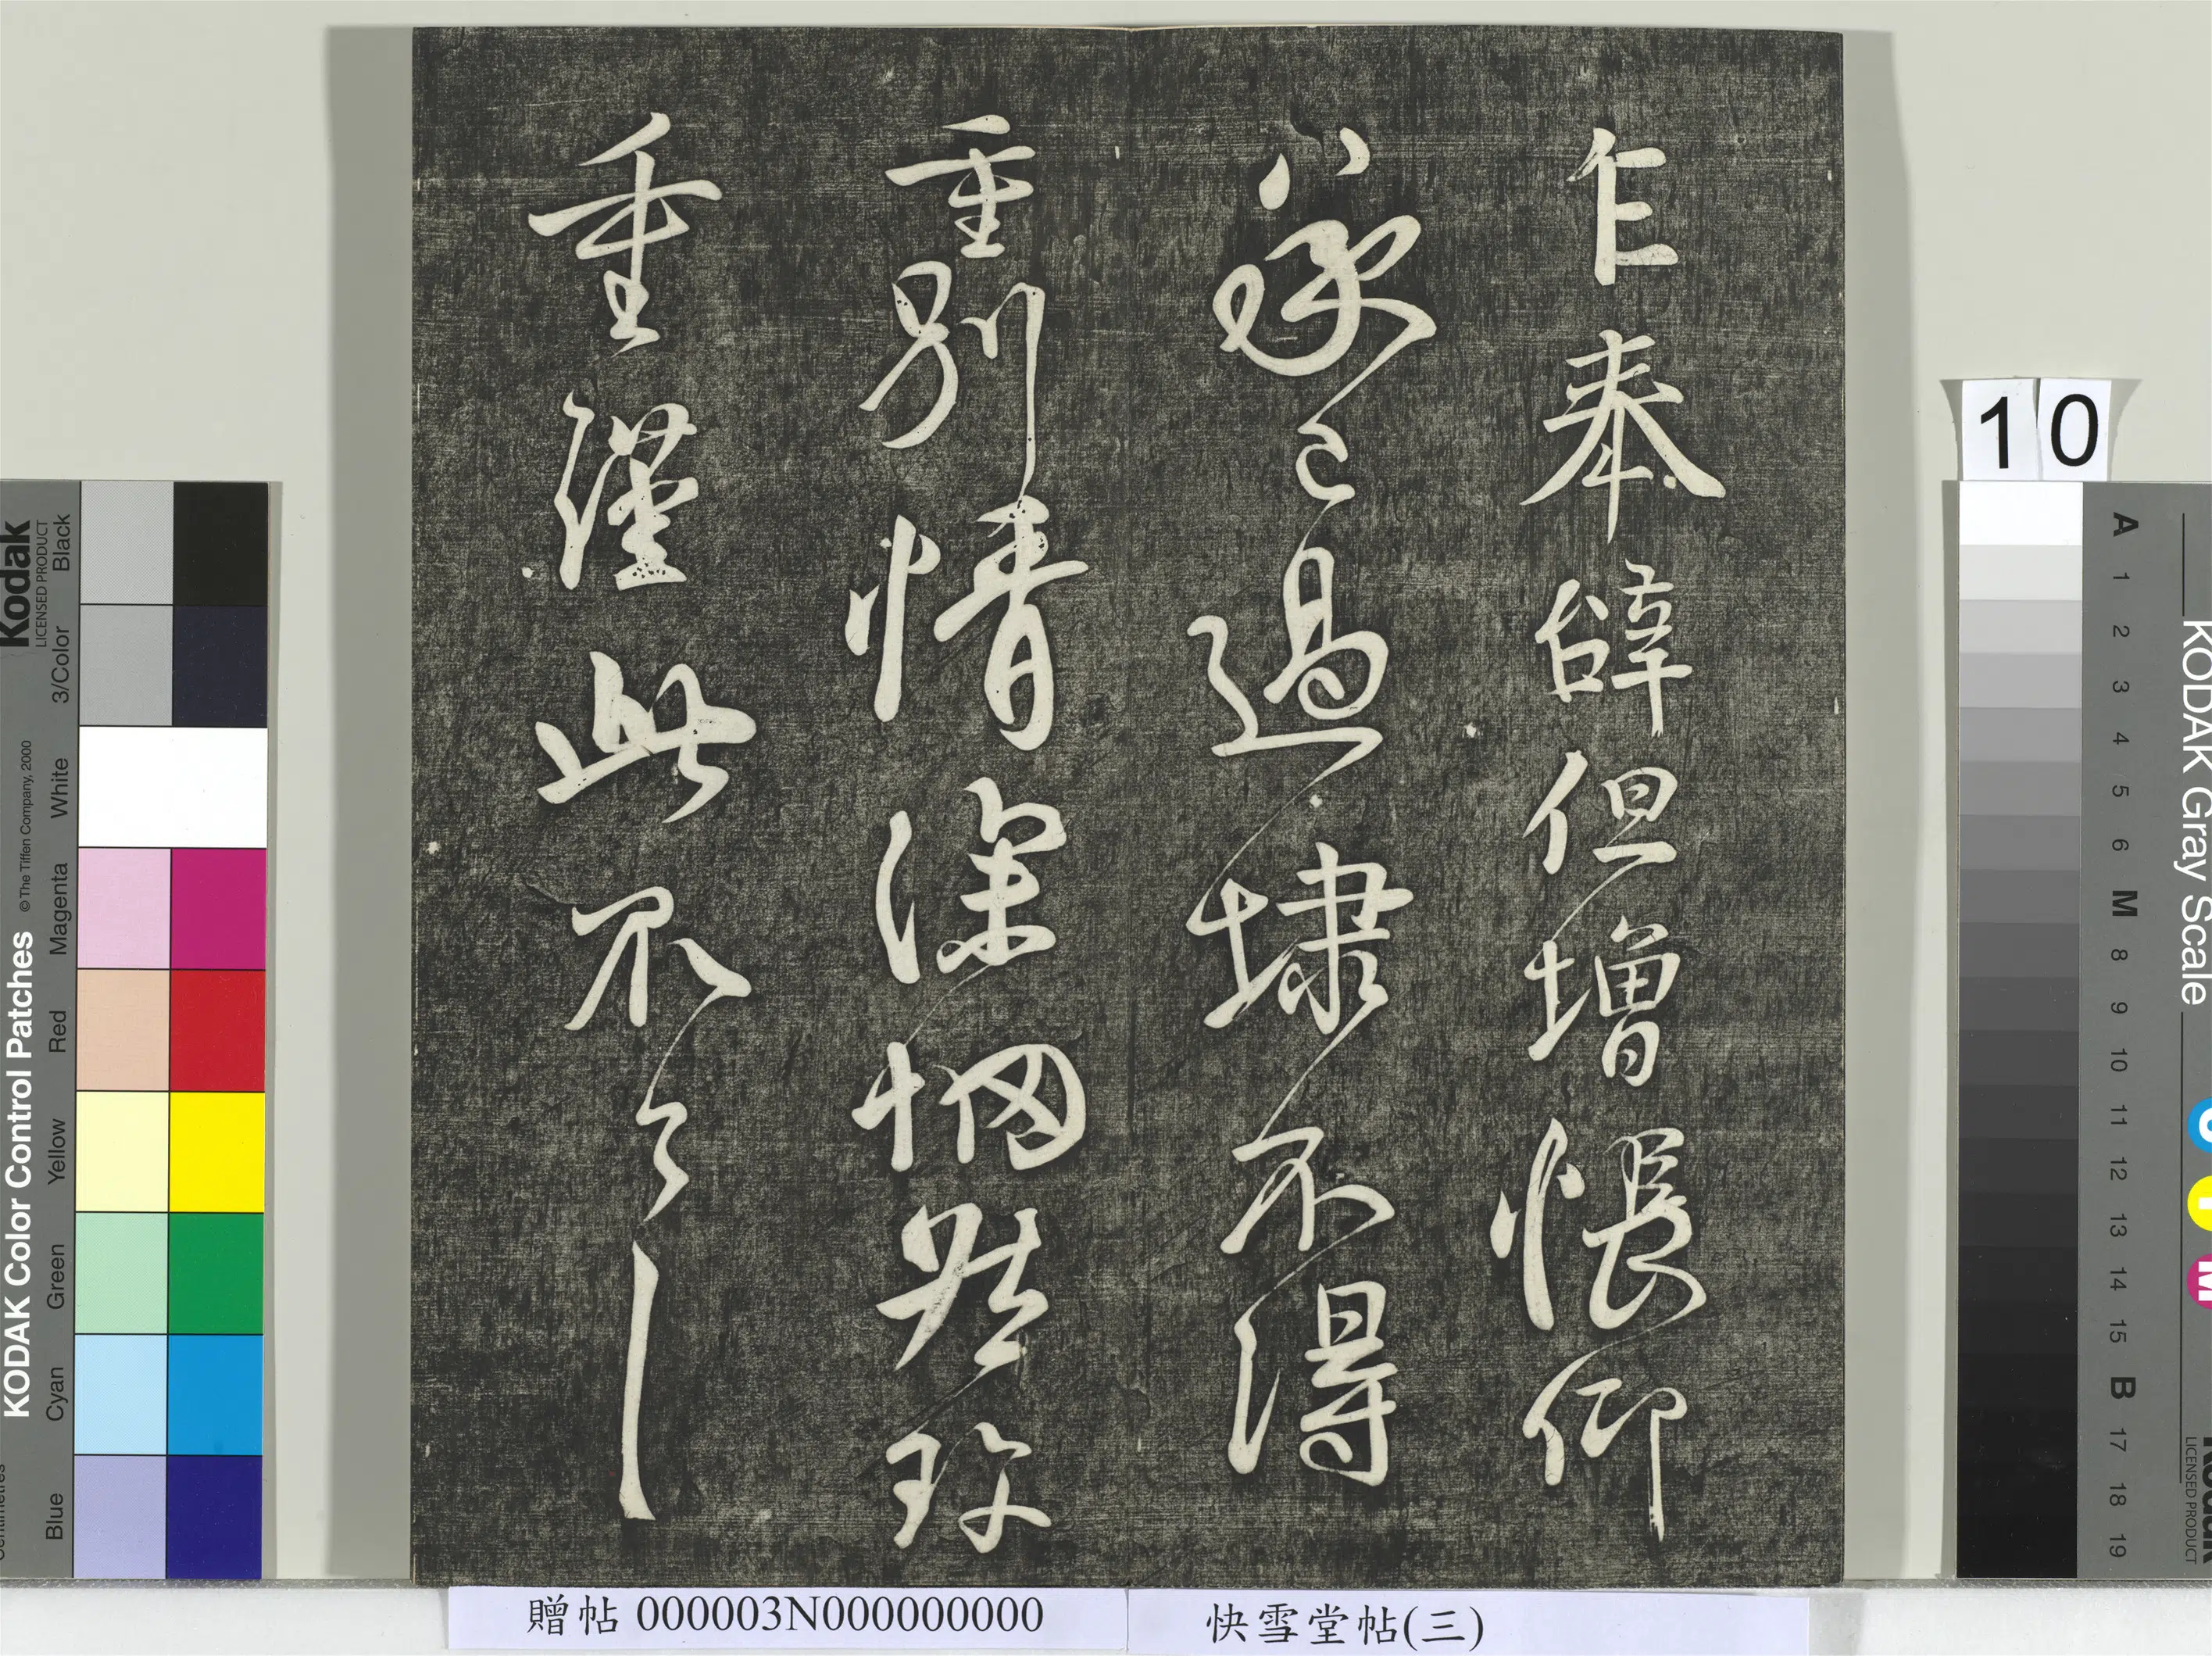 乍奉辭但增悵仰
承已過埭不得
重別情深惘然珍
重謹此不
快雪堂帖(三)
贈帖 000003N000000000
10
KODAK Color Control Patches
© The Tiffen Company, 2000
Kodak
LICENSED PRODUCT
Blue Cyan Green Yellow Red Magenta White 3/Color Black
KODAK Gray Scale
A 1 2 3 4 5 6 M 8 9 10 11 12 13 14 15 B 17 18 19
C Y M
Kodak
LICENSED PRODUCT